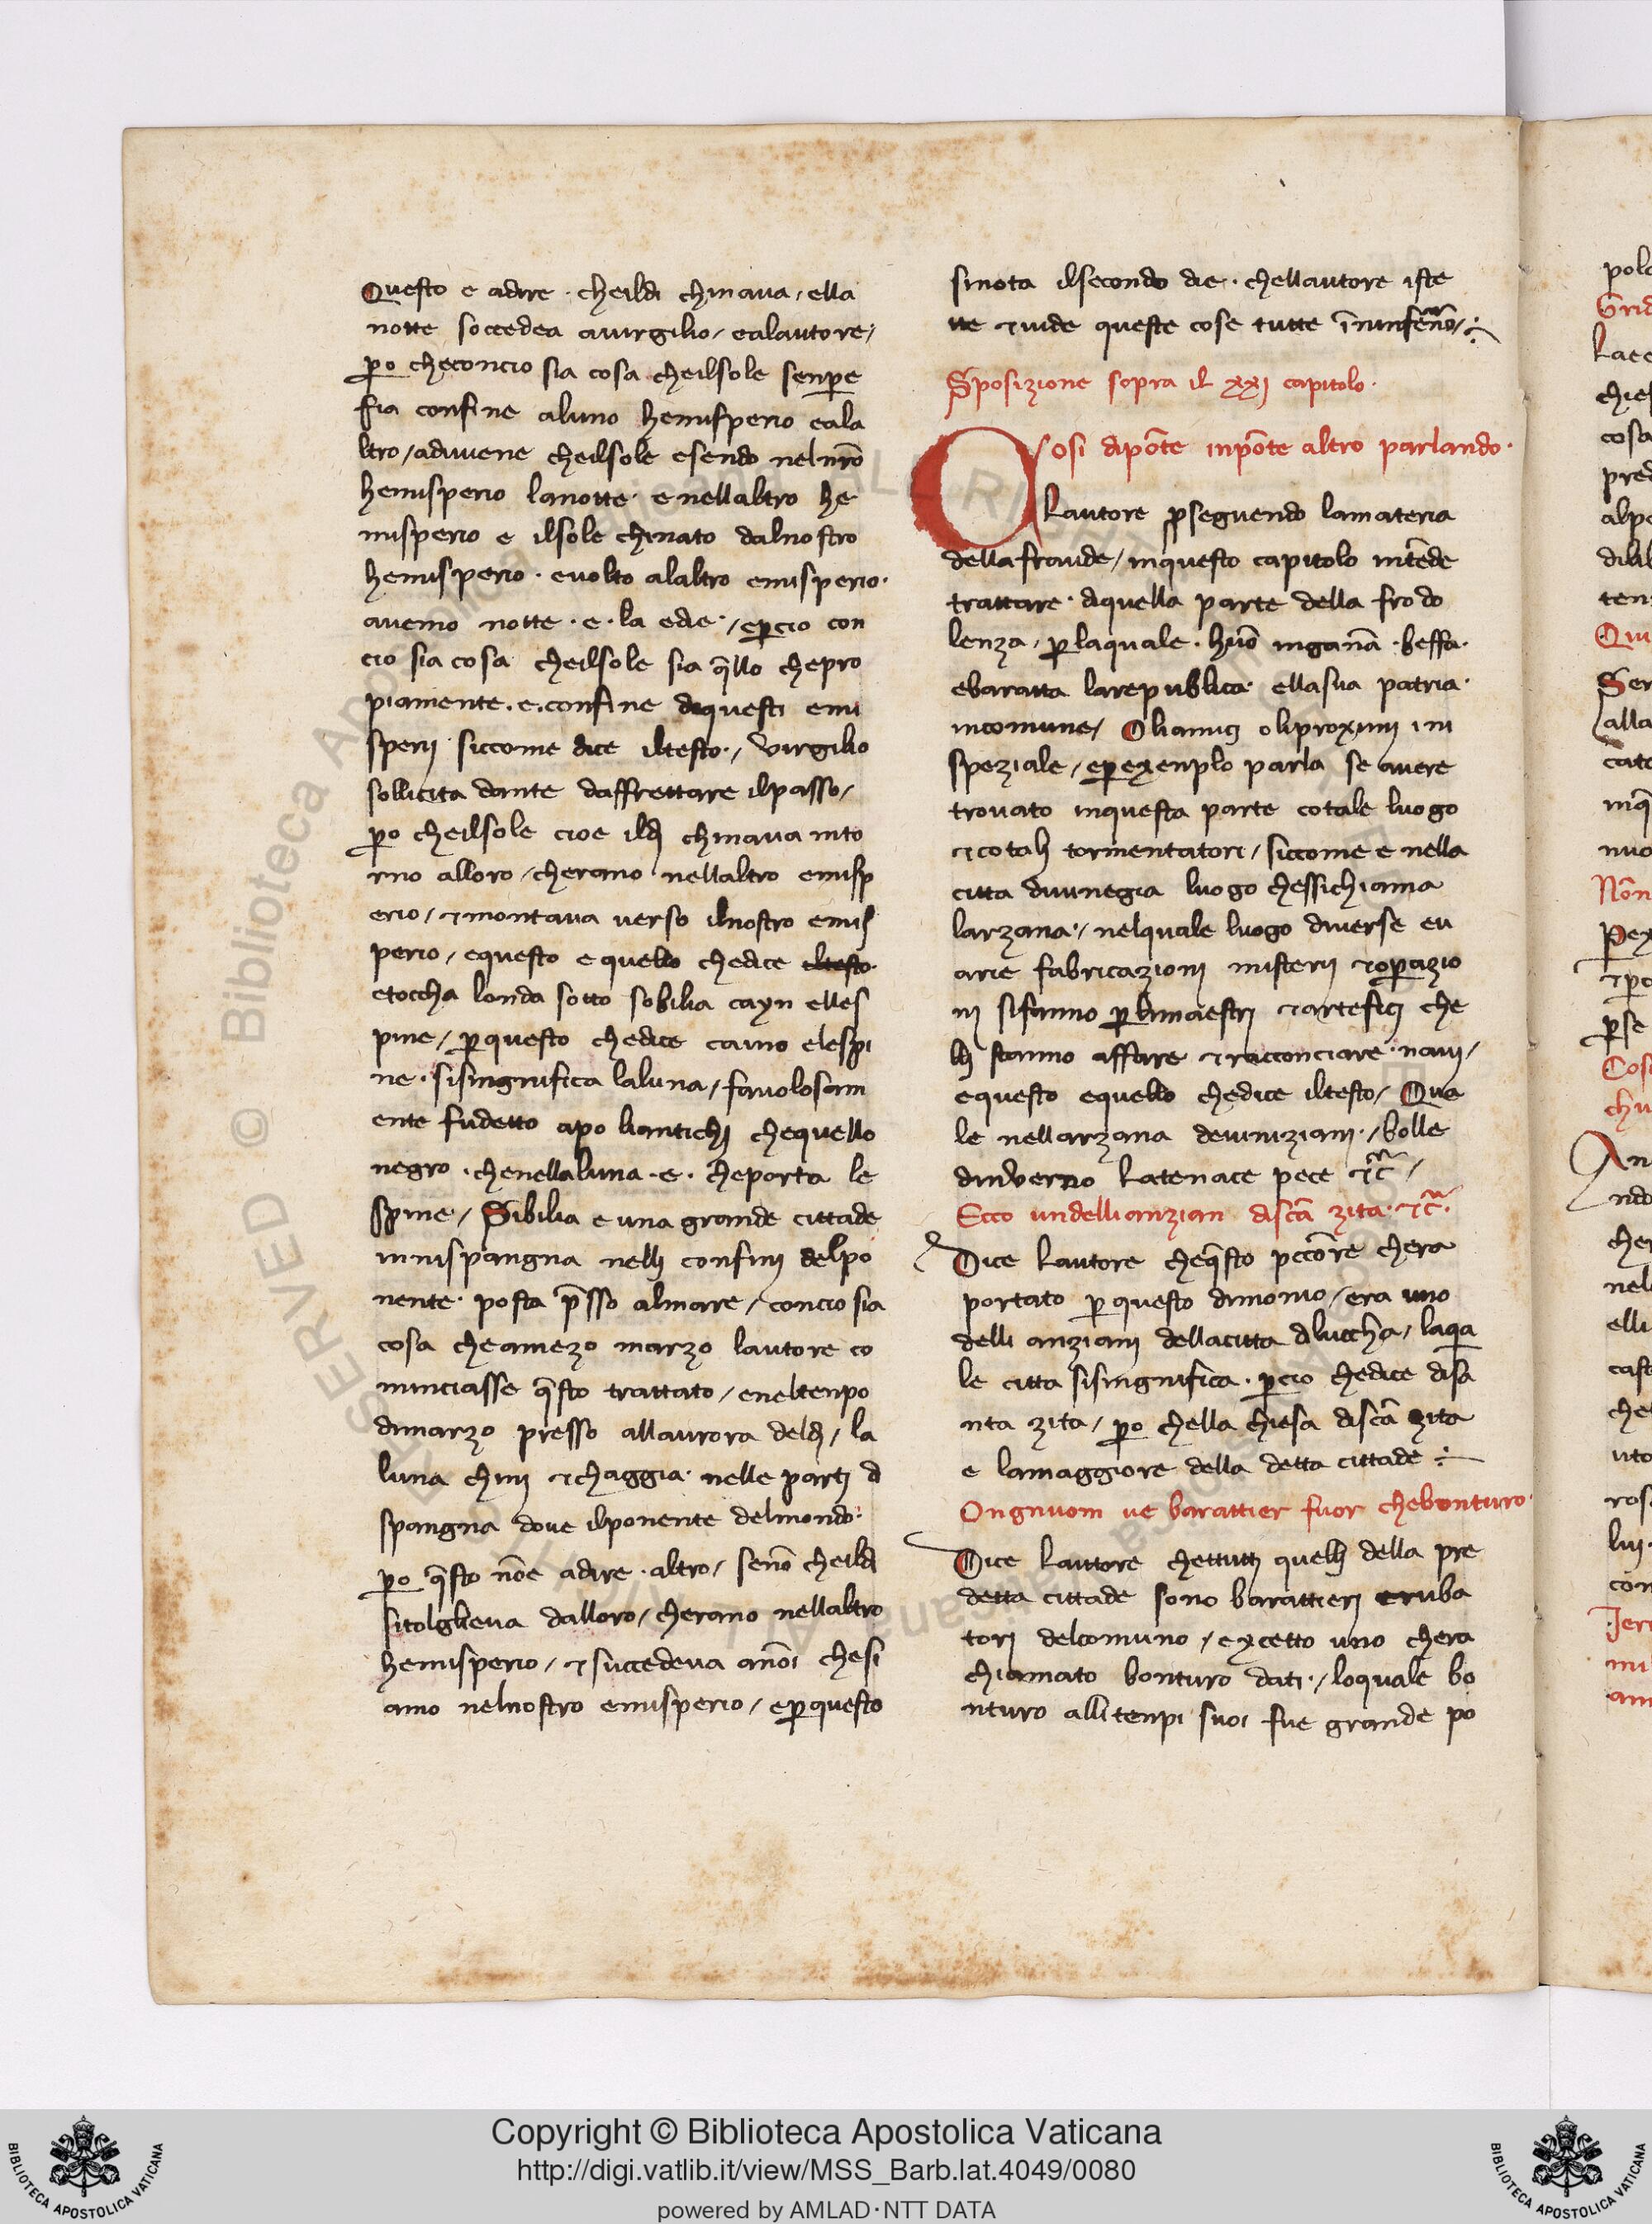 Questo e adire · cheildi chinaua / ella
notte soccedea auirgilio / ealautore /
ꝑo checoncio sia cosa cheilsole senpre
sia confine aluno hemisperio eala
ltro / adiuiene cheilsole esendo nelnr̃o
hemisperio lanotte · e nellaltro he
misperio e ilsole chinato dalnostro
hemisperio · euolto alaltro emisperio ·
auemo notte · e · la edie · / eꝑcio con
cio sia cosa cheilsole sia q̃llo chepro
piamente · e · confine diquesti emi
sperij siccome dice iltesto · / Virgilio
sollicita dante daffrettare ilpasso /
ꝑo cheilsole cioe ildj chinaua into
rno alloro / cherano nellaltro emisp
erio / ⁊montaua uerso ilnostro emis
perio / equesto e quello chedice iltesto ·
etoccha londa sotto sobilia cayn elles
pine / ꝑquesto chedice caino elespi
ne · sisingnifica laluna / fauolosam
ente fudetto apo liantichj chequello
negro · chenellaluna · e · cheporta le
spine · / Sibilia e una grande cittade
innispangna nellj confinj delpo
nente · posta p̃sso almare / concio sia
cosa cheamezo marzo lautore co
minciasse q̃sto trattato / eneltenpo
dimarzo presso allaurora deldj / la
luna chinj ⁊chaggia · nelle partj d
spangna doue ilponente delmondo ·
ꝑo q̃sto nõe adire · altro / senõ cheildi
sitolglieua dalloro / cherano nellaltro
hemisperio / ⁊succedeua anõi chesi
amo nelnostro emisperio / eꝑquesto
sinota ilsecondo die · chellautore iste
tte ⁊uide queste cose tutte ĩninferño /
Sposizione sopra il xxj capitolo ·
Cosi dipõte inpõte altro parlando ·
Lautore ꝓseguendo lamateria
dellafraude / inquesto capitolo intẽde
trattare · diquella parte della frodo
lenza / ꝑlaquale · huõ inganã · beffa ·
ebaratta larepublica · ellasua patria ·
incomune / Oliamicj oliproximj im
speziale / eꝑexenplo parla se auere
trouato inquesta parte cotale luogo
⁊cotalj tormentatori / siccome e nella
citta diuinegia luogo chessichiama
larzana · / nelquale luogo diuerse eu
arie fabricazionj misterij ⁊oꝑazio
nj sifanno ꝑlimaestrj ⁊arteficj che
lj stanno affare ⁊racconciare · nauj /
equesto equello chedice iltesto / Qua
le nellarzana deuiniziani · / bolle
dinverno Latenace pece ⁊c̃ /
Ecco undellianzian discã zita · ⁊c̃ ·
Dice Lautore cheq̃sto pccõre chera
portato ꝑ questo dimonio / era uno
delli anziani dellacitta dlucchа / laqua
le citta sisingnifica · ꝑcio chedice disa
nta zita / ꝑo chella chiesa discã zita
e lamaggiore della detta cittade
Ongnuom ue barattier fuor chebonturo ·
Dice Lautore chettuttj quellj della pre
detta cittade sono barattierj eruba
torj delcomuno / excetto uno chera
chiamato bonturo dati · / loquale bo
nturo alli tenpi suoi fue grande po
Copyright © Biblioteca Apostolica Vaticana
http://digi.vatlib.it/view/MSS_Barb.lat.4049/0080
powered by AMLAD·NTT DATA